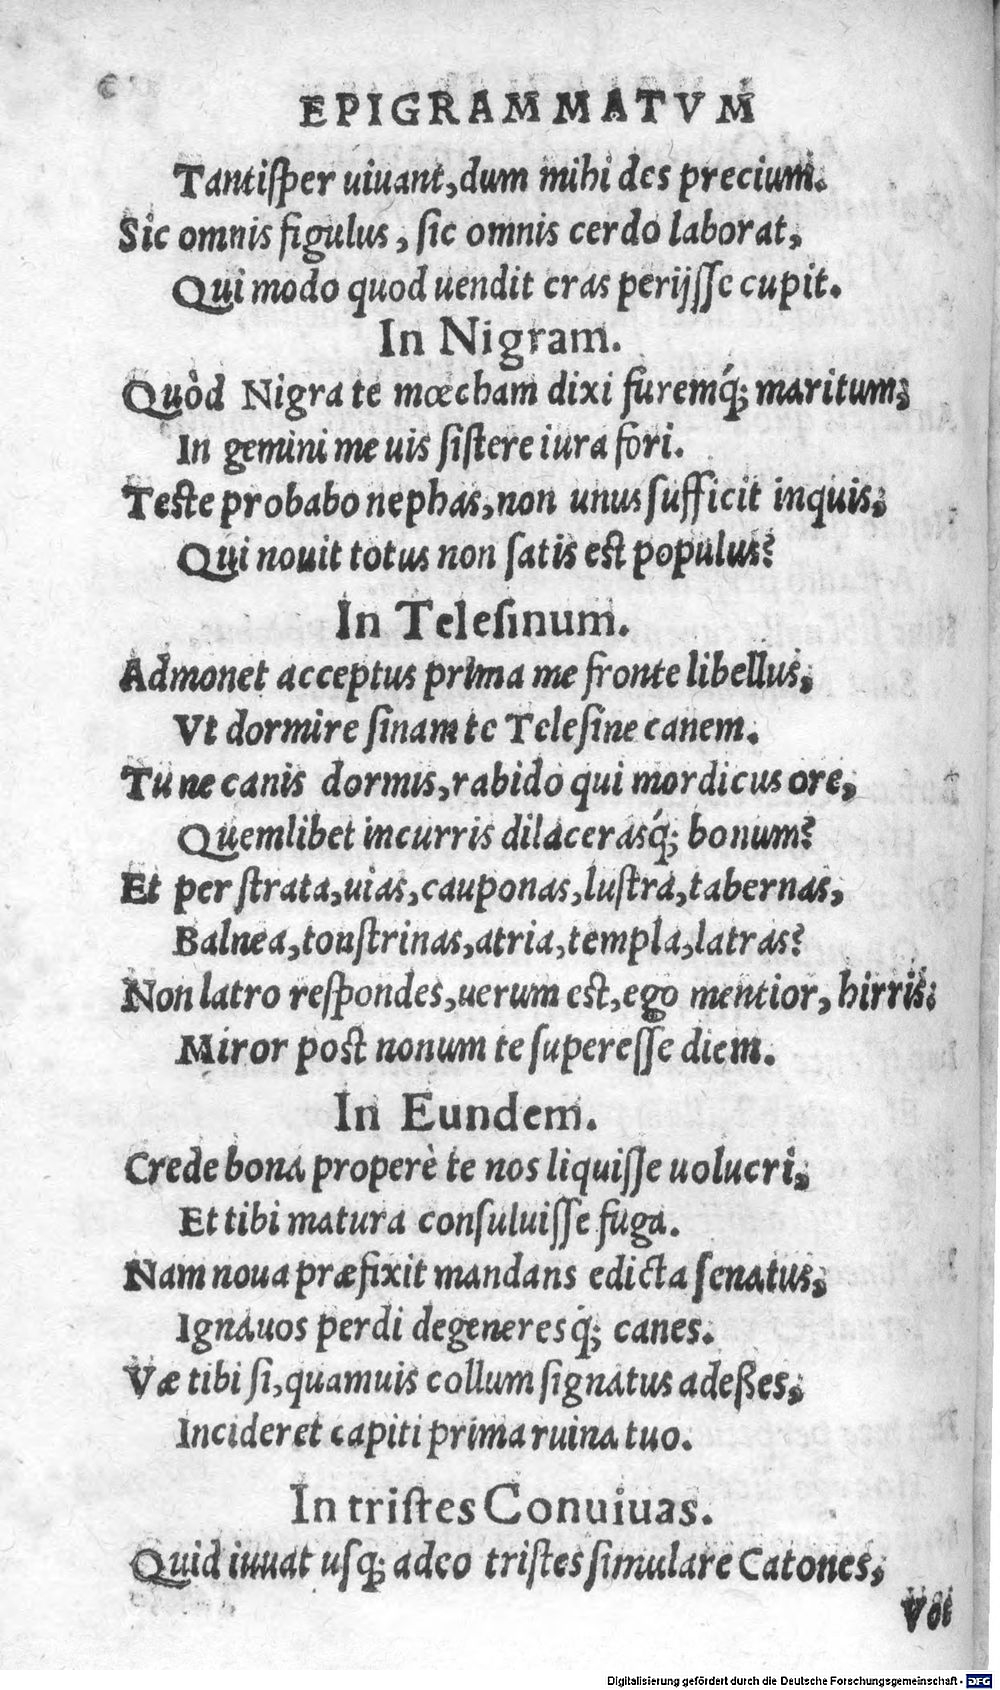 EPIGRAMMATVM
Tantiſper uiuant, dum mihi des precium.
Sic omnis figulus, ſic omnis cerdo laborat,
Qui modo quod uendit cras perijſſe cupit.
In Nigram.
Quòd Nigra te mœcham dixi furemq́; maritum,
In gemini me uis ſiſtere iura fori.
Teſte probabo nephas, non unus ſufficit inquis,
Qui nouit totus non ſatis eſt populus?
In Teleſinum.
Admonet acceptus prima me fronte libellus,
Vt dormire ſinam te Teleſine canem.
Tu ne canis dormis, rabido qui mordicus ore,
Quemlibet incurris dilacerasq́; bonum?
Et per ſtrata, uias, cauponas, luſtra, tabernas,
Balnea, tonſtrinas, atria, templa, latras?
Non latro reſpondes, uerum eſt, ego mentior, hirris:
Miror poſt nonum te ſupereſſe diem.
In Eundem.
Crede bona properè te nos liquiſſe uolucri,
Et tibi matura conſuluiſſe fuga.
Nam noua præfixit mandans edicta ſenatus,
Ignauos perdi degeneresq́; canes.
Væ tibi ſi, quamuis collum ſignatus adeßes,
Incideret capiti prima ruina tuo.
In triſtes Conuiuas.
Quid iuuat uſq; adeo triſtes ſimulare Catones,
Vol
Digitalisierung gefördert durch die Deutsche Forschungsgemeinschaft - DFG